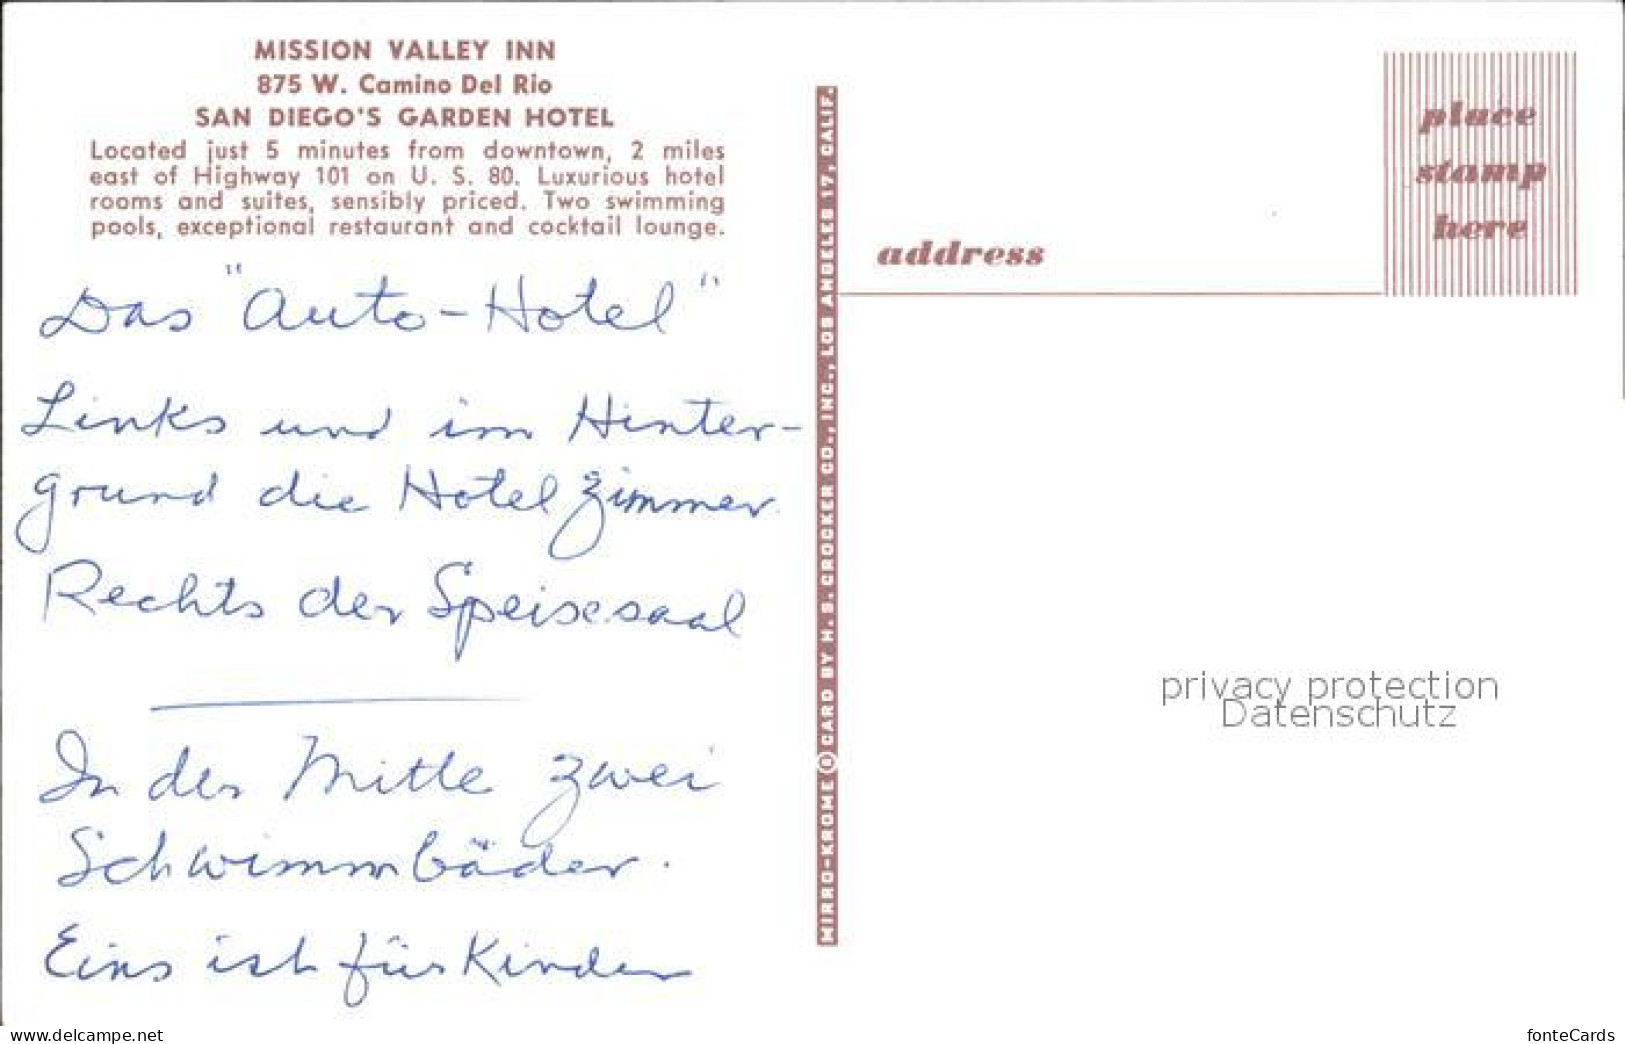 MISSION VALLEY INN
875 W. Camino Del Rio
SAN DIEGO'S GARDEN HOTEL
Located just 5 minutes from downtown, 2 miles
east of Highway 101 on U. S. 80. Luxurious hotel
rooms and suites, sensibly priced. Two swimming
pools, exceptional restaurant and cocktail lounge.
Das "Auto-Hotel"
Links und im Hinter-
grund die Hotelzimmer
Rechts der Speisesaal
In der Mitte zwei
Schwimmbäder.
Eins ist für Kinder
MIRRO-KROME ® CARD BY H. S. CROCKER CO., INC., LOS ANGELES 17, CALIF.
address
place
stamp
here
privacy protection
Datenschutz
www.delcampe.net
fonteCards